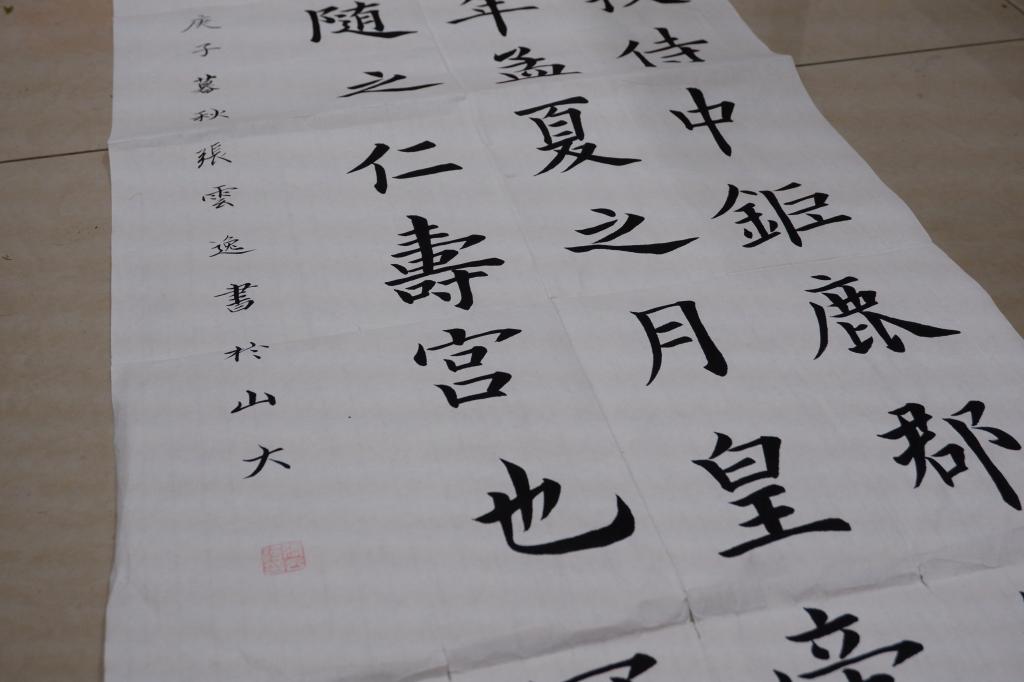 侍中鉅鹿郡
年孟夏之月皇帝
隨之仁壽宮也
庚子暮秋張雲逸書於山大